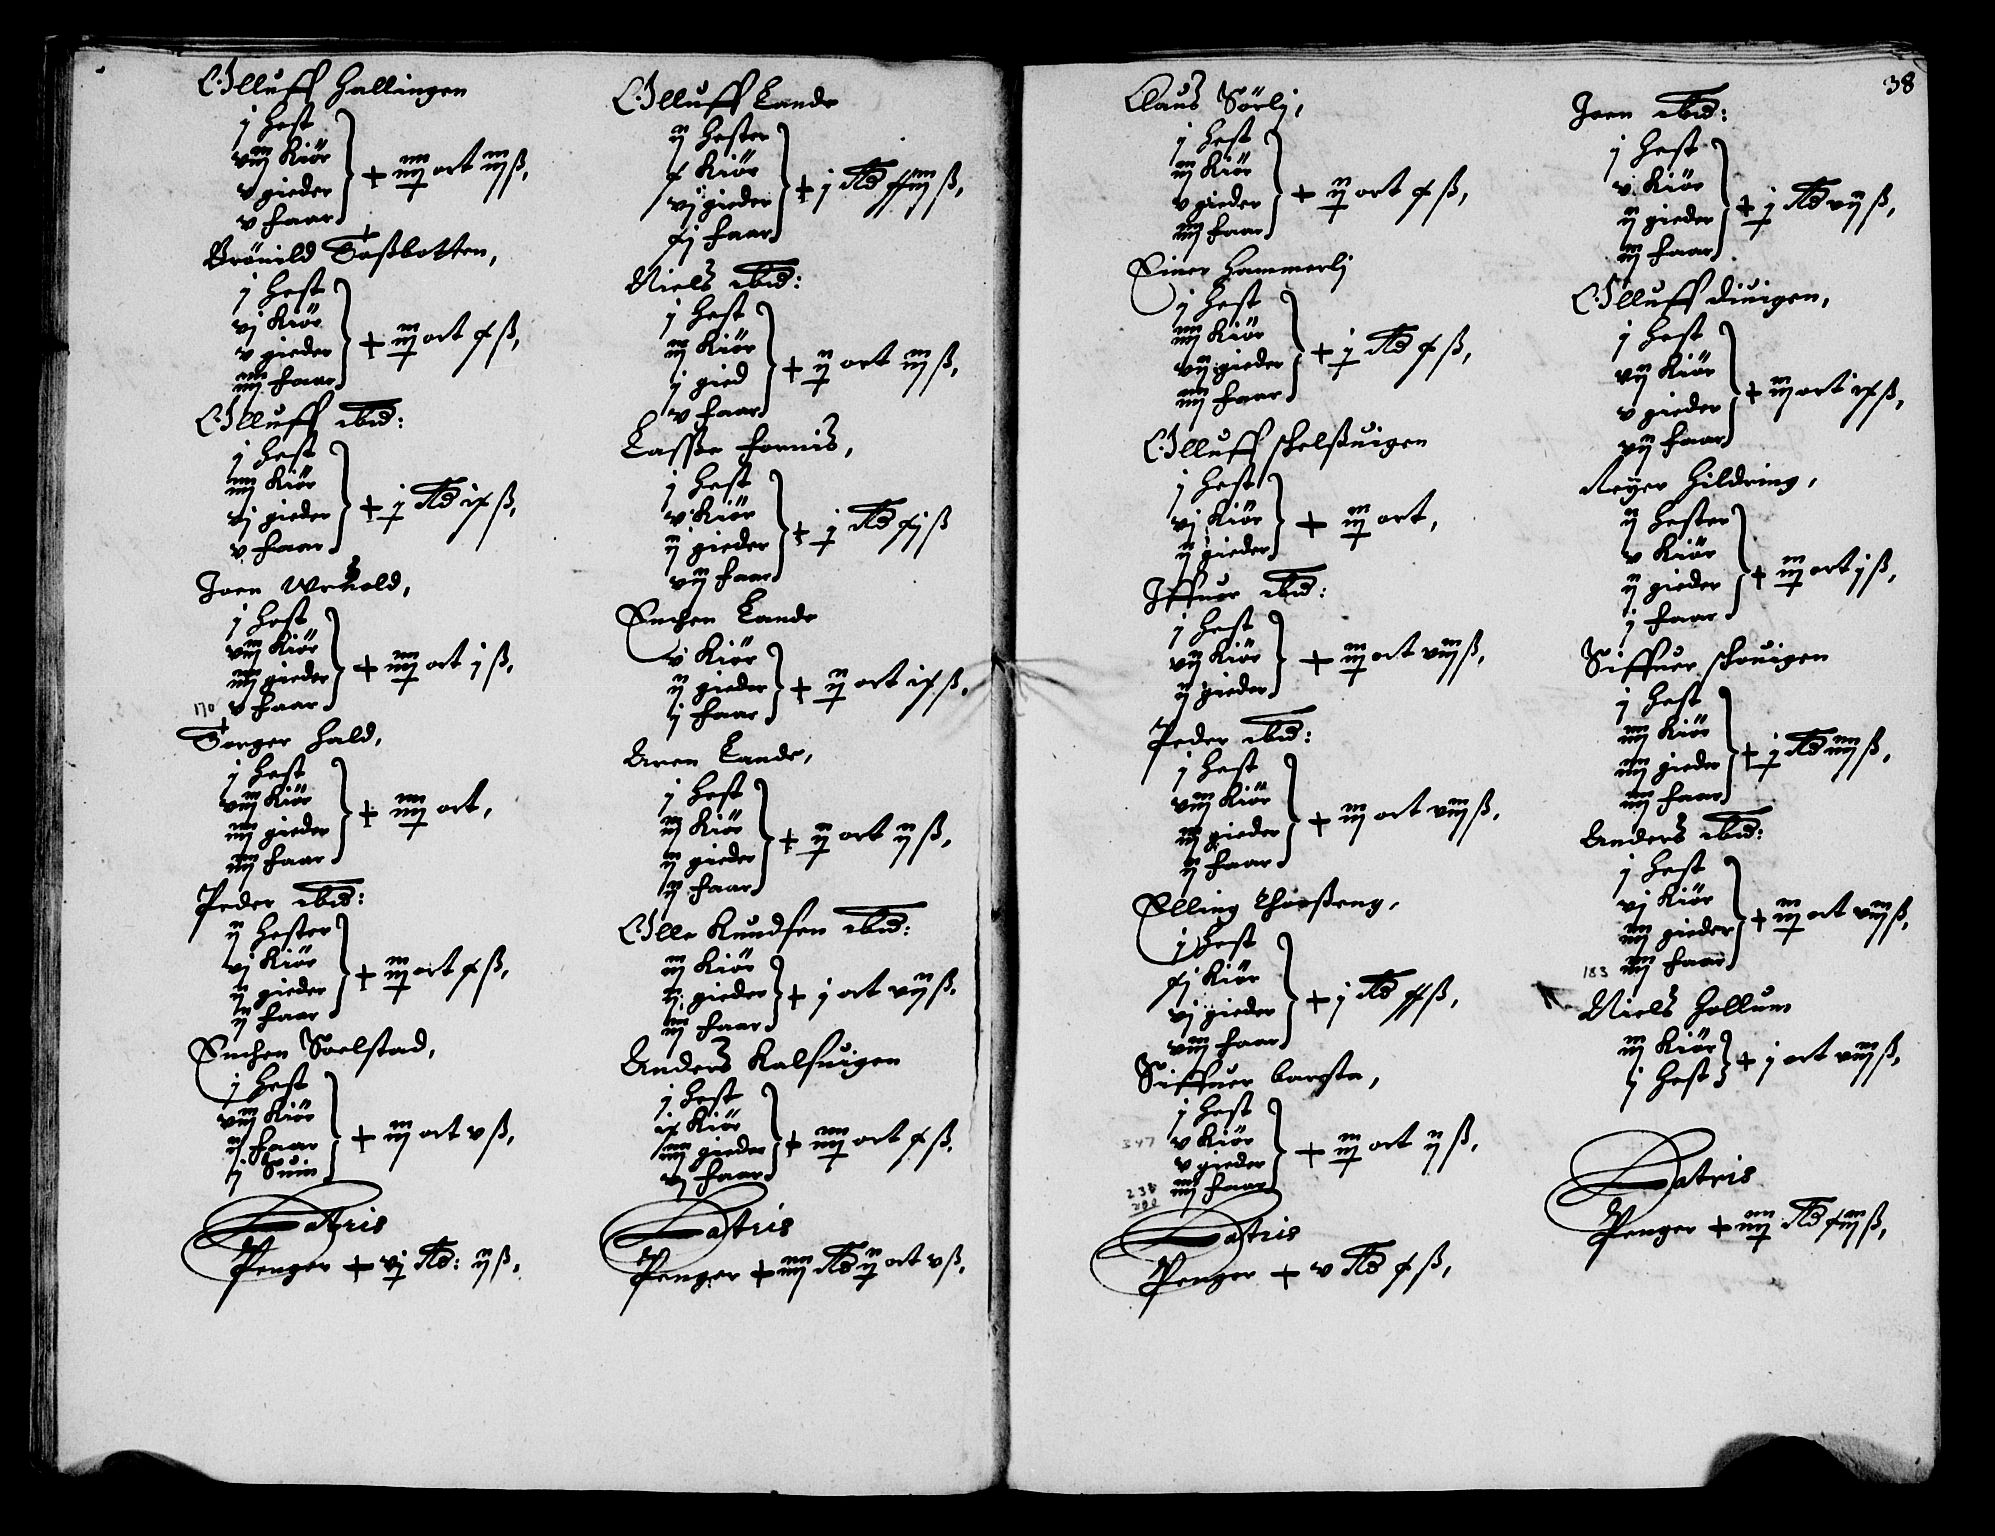 Olluff Hallingen
j Hest
viij Kiör
v gieder
v faar
+ iiij ort iiij ß,
Brönild Toßbotten,
j Hest
vj Kiör
v gieder
iiij faar
+ iij ort x ß,
Olluff ibid:
j Hest
iiij Kiör
vj gieder
v faar
+ j Rd ix ß,
Joen
j Hest
viij Kiör
iiij gieder
v faar
+ iiij ort j ß,
170
Torger Hald,
j Hest
viij Kiör
iiij gieder
iiij faar
+ iiij ort,
Peder ibid:
ij Hester
vj Kiör
ij gieder
ij faar
+ iij ort x ß,
Enchen Soelstad,
j Hest
viij Kiör
ij faar
j Suin
+ iij ort v ß,
Lateris
Penger + vj Rd: ij ß,
Olluff Lande
ij Hester
x Kiör
vj gieder
xj faar
+ j Rd xxiiij ß,
Niels ibid:
j Hest
iij Kiör
j gied
v faar
+ ij ort iij ß,
Lasse fornis,
j Hest
v Kiör
ij gieder
vij faar
+ j Rd xj ß
Enchen Lande
v Kiör
ij gieder
j faar
+ ij ort ix ß,
Aren Lande,
j Hest
iij Kiör
ij gieder
ij faar
+ ij ort ij ß,
Olle Knudsen ibid:
iij Kiör
ij gieder
iij faar
+ j ort vij ß.
Anders Kalsuigen
j Hest
ix Kiör
iiij gieder
vj faar
+ iiij ort x ß.
Lateris
Penger + iiij Rd ij ort v ß,
38
Claus Sörlj,
j Hest
iij Kiör
v gieder
iiij faar
+ ij ort x ß,
Einer Hammerlj
j Hest
iiij Kiör
vij gieder
iiij faar
+ j Rd x ß,
Olluff skelßuigen
j Hest
vj Kiör
ij gieder
+ iij ort,
Iffuer ibid:
j Hest
vij Kiör
ij gieder
+ iij ort viij ß,
Peder ibid:
j Hest
viij Kiör
iij gieder
ij faar
+ iij ort viij ß.
Elling
j Hest
xj Kiör
vj gieder
viij faar
+ j Rd xx ß,
Siffuer
j Hest
v Kiör
v gieder
iij faar
+ iij ort ij ß,
347
238
Lateris
Penger + v Rd x ß,
Joen ibid:
j Hest
v Kiör
ij gieder
iij faar
+ j Rd vij ß,
Olluff Diuigen,
j Hest
vij Kiör
v gieder
vij faar
+ iij ort ix ß,
Reyer Hildring,
ij Hester
v Kiör
ij gieder
j faar
+ iij ort j ß,
Siffuer skouigen
j Hest
iiij Kiör
iiij gieder
iiij faar
+ j Rd iiij ß,
Anders ibid:
j Hest
vj Kiör
iiij gieder
iiij faar
+ iij ort viij ß,
183
Niels Hollum
iij Kiör
j Hest
+ j ort viij ß,
Lateris
Penger + iiij Rd xiij ß,